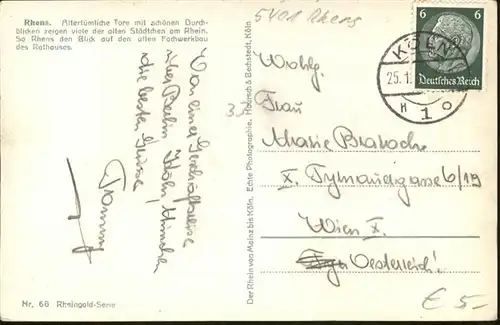 Rhens. Altertümliche Tore mit schönen Durch-
blicken zeigen viele der alten Städtchen am Rhein.
So Rhens den Blick auf den alten Fachwerkbau
des Rathauses.
Von einer Geschäftsreise
über Berlin Köln, München
die besten Grüsse
Nr. 68 Rheingold-Serie
Der Rhein von Mainz bis Köln. Echte Photographie. Hoursch & Bechstedt, Köln
5401 Rhens
35
6 6
Deutsches Reich
KÖLN
25.1
H 1 o
Wohlg.
Frau
Marie
X. 6/19
Wien X.
Oesterreich!
€ 5-